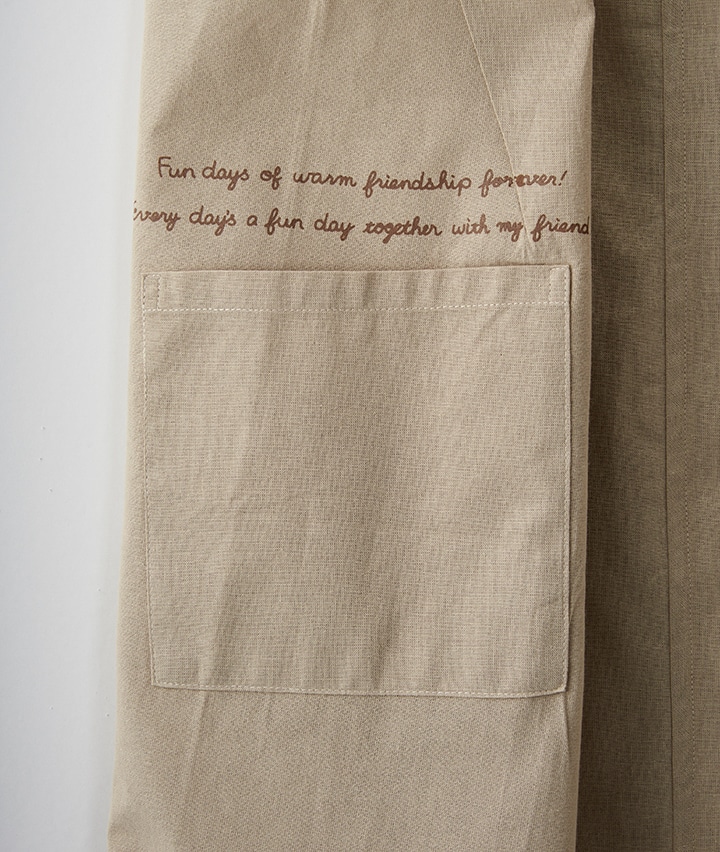 Fun days of warm friendship forever!
Every day's a fun day together with my friend